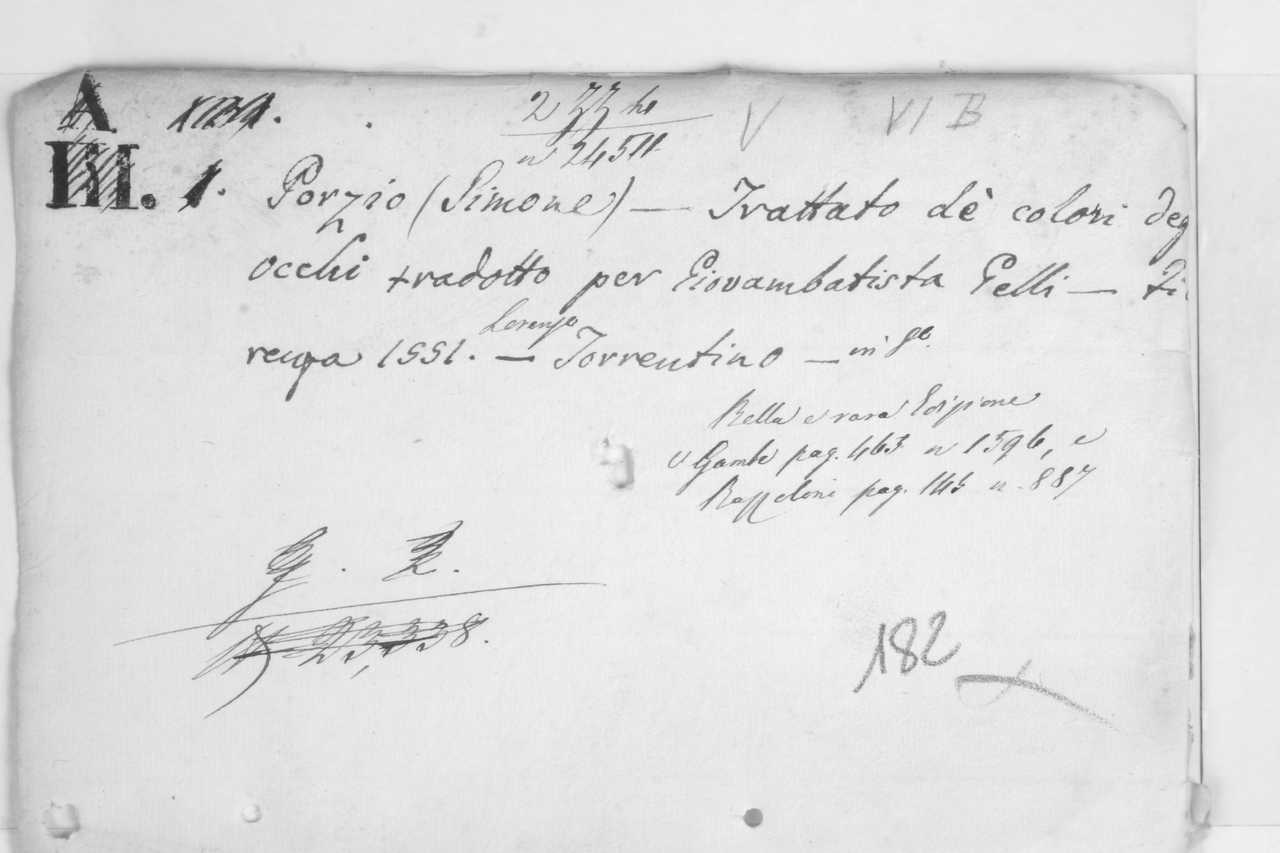 A
III. 1.
V VI B
n 24511
Porzio (Simone) — Trattato dè colori deg
occhi tradotto per Giovambatista Gelli — Fi
renza 1551. — Lorenzo Torrentino — in 8º.
Bella e rara Edizione
V Gamba pag. 463 n 1596, e
Razzolini pag. 145 n. 887
182